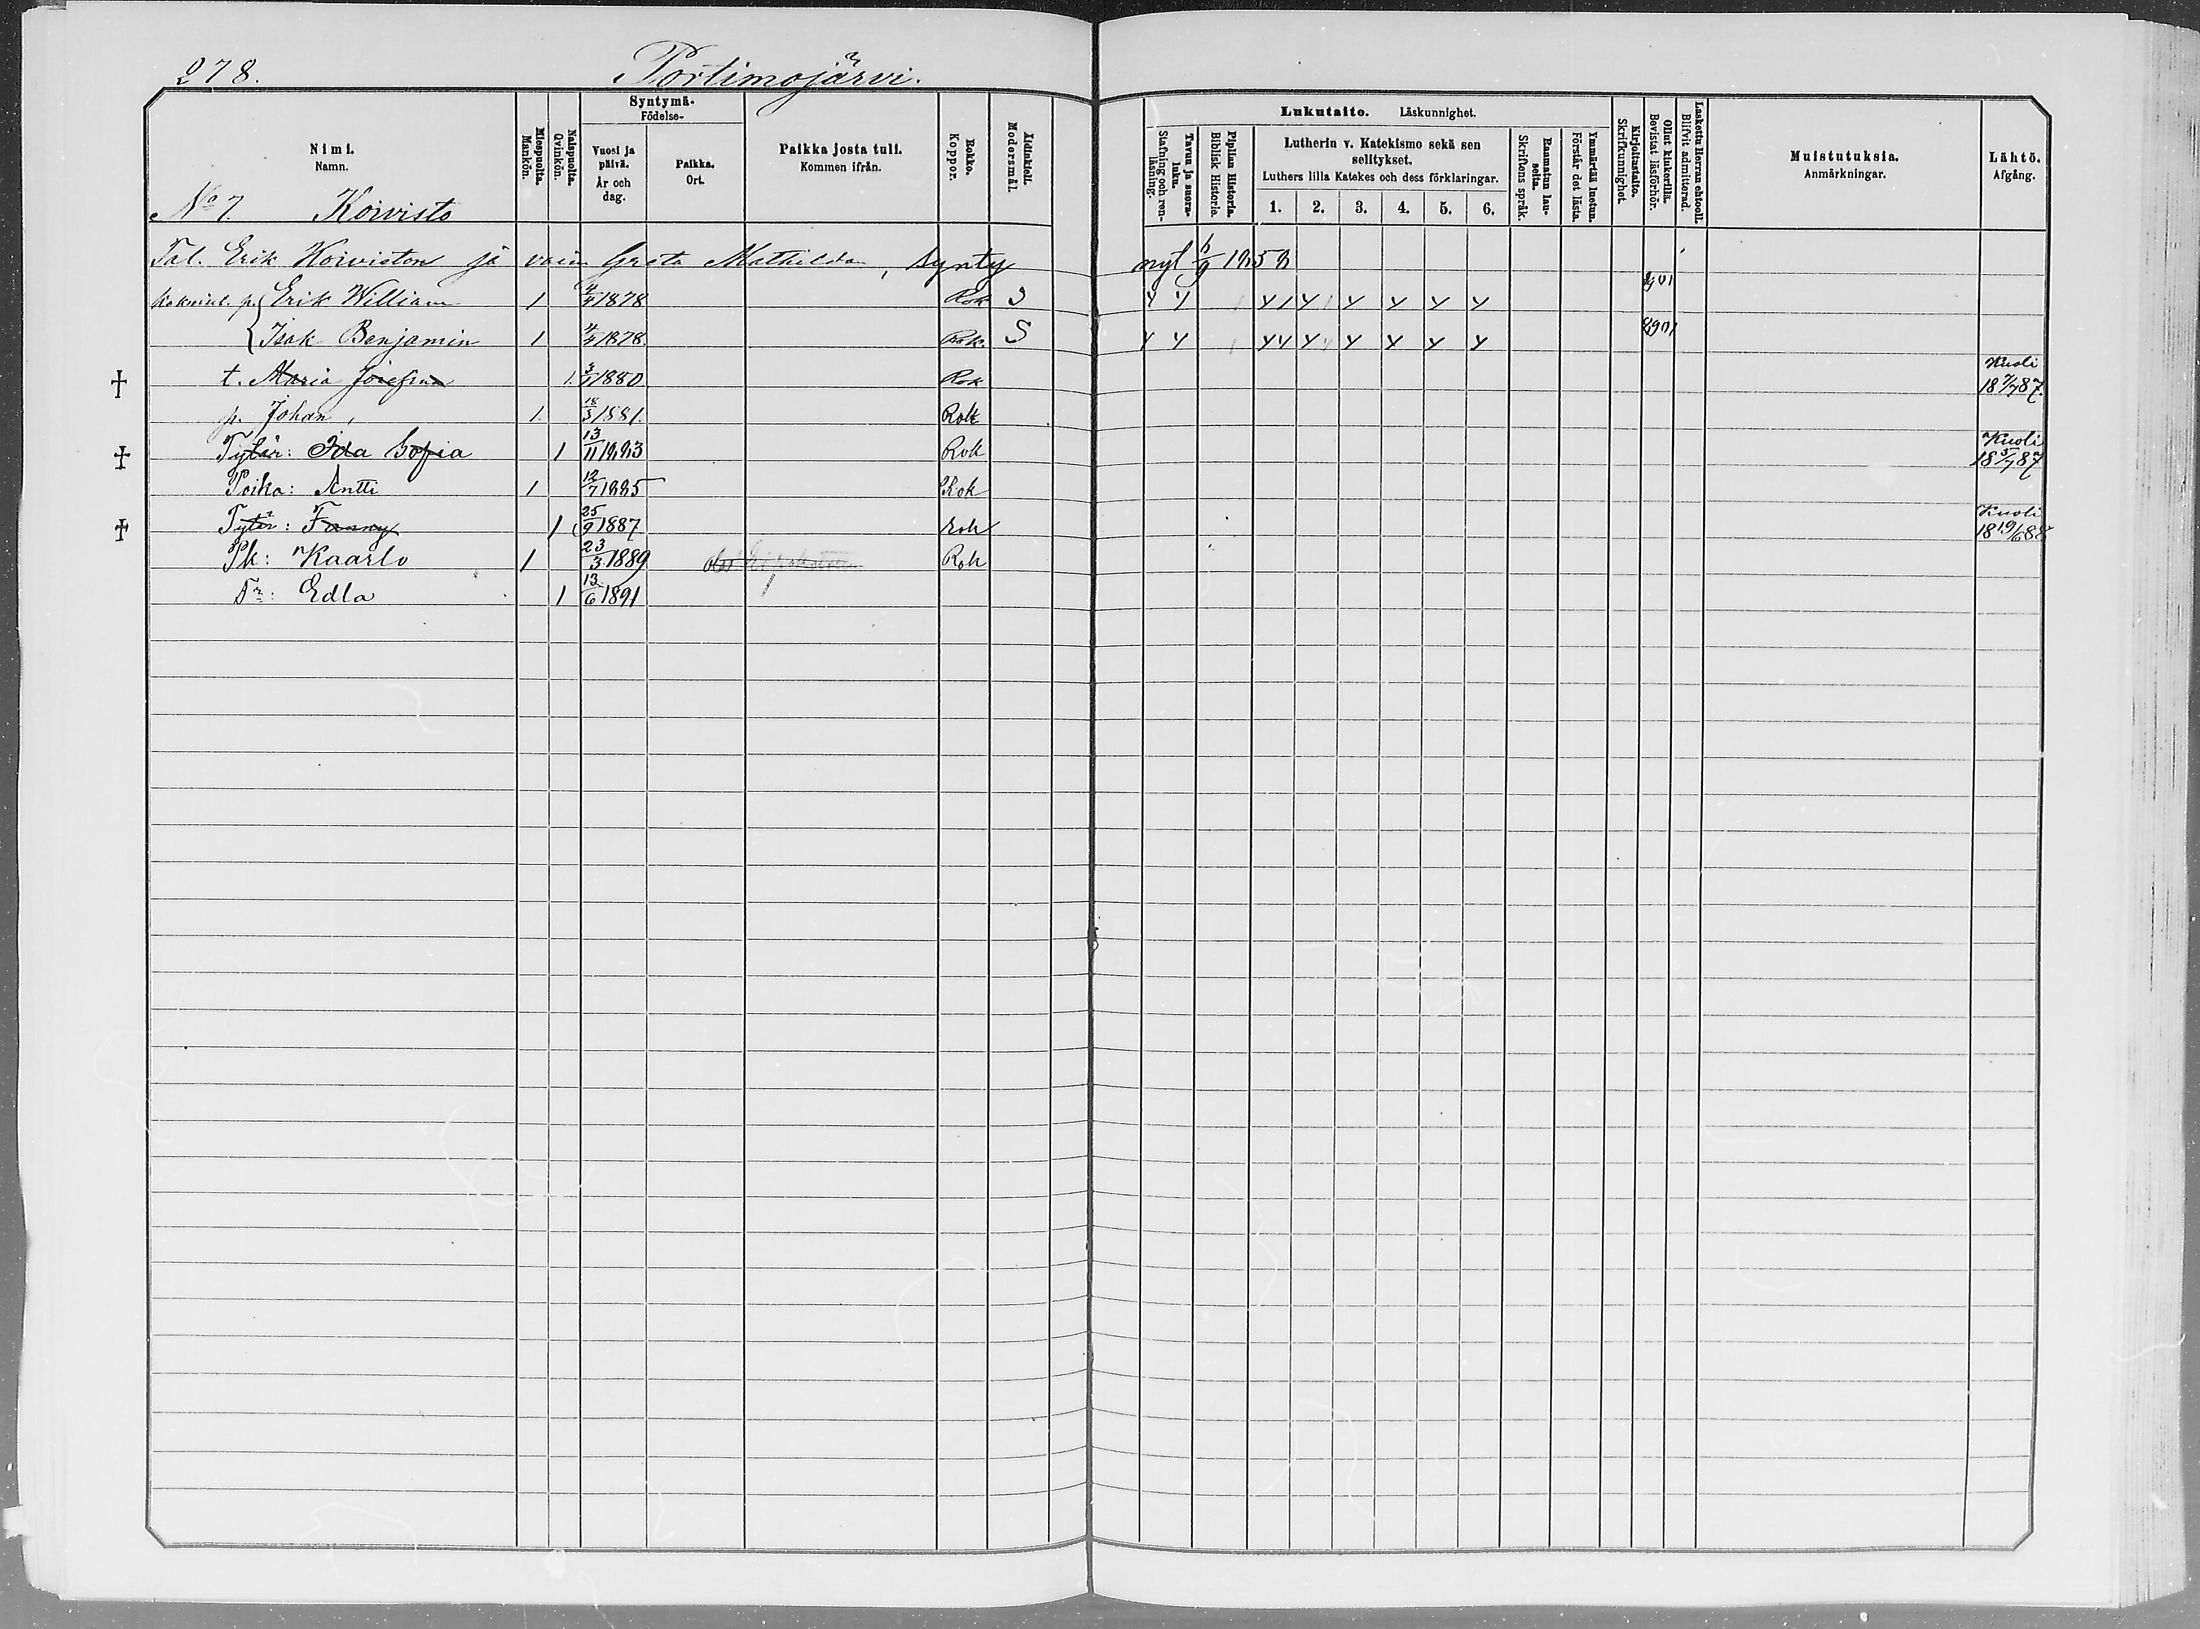 278. Portimojärvi.
Nimi. Namn.
Miespuolta. Mankön.
Naispuolta. Qvinkön.
Syntymä- Födelse-
Vuosi ja päivä. År och dag.
Paikka. Ort.
Paikka josta tuli. Kommen ifrån.
Rokko. Koppor.
Äidinkieli. Modersmål.
Lukutaito. Läskunnighet.
Tavun ja suora- luku. Stafning och ren- läsning.
Piplian Historia. Biblisk Historie.
Lutherin v. Katekismo sekä sen selitykset.
Luthers lilla Katekes och dess förklaringar.
1. 2. 3. 4. 5. 6.
Raamatun lau- seita. Skriftens språk.
Ymmärtää luetun. Förstår det lästa.
Kirjoitustaito. Skrifkunnighet.
Ollut kinkerillä. Bevistat läsförhör.
Laskettu Herran ehtooll. Blifvit admitterad.
Muistutuksia. Anmärkningar.
Lähtö. Afgång.
No 7. Koivisto
Tal. Erik Koiviston ja vaim Greta Mathildan, synty nyt 6/9 1858
p. Erik William 1 4/4 1878 Rok S y y y 1 y 1 y y y y 1901
Isak Benjamin 1 4/4 1878. Rok. S y y y y y y y y y y 8901
† t. Maria Josefina 1. 3/1 1880 Rok Kuoli 18 7/7 87.
p. Johan, 1. 18/3 1881. Rok
† Tytär: Ida Sofia 1 13/11 1883 Rok Kuoli 18 5/7 87
Poika: Antti 1 12/7 1885 Rok
† Tytär: Fanny 1 25/9 1887 rok Kuoli 18 19/6 88
Pk: Kaarlo 1 23/3 1889 Rok
Tr: Edla 1 13/6 1891